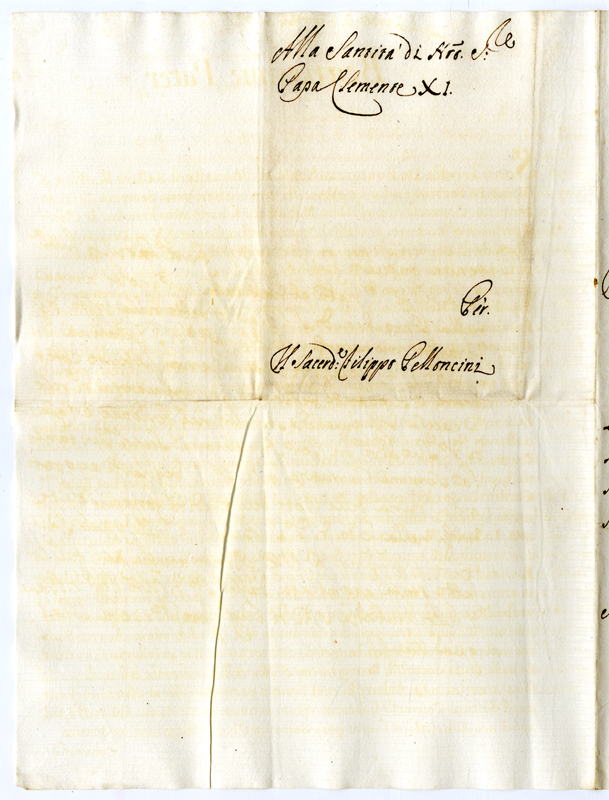 Alla Santità di Nrõ. S.re
Papa Clemente XI.
Per.
Il Sacerd.e Filippo Pelloncini